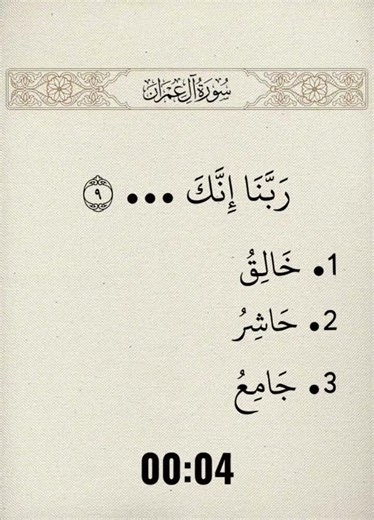 سُورَةُ آلِ عِمْرَانَ
رَبَّنَا إِنَّكَ ••• ٩
1• خَالِقُ
2• حَاشِرُ
3• جَامِعُ
00:04